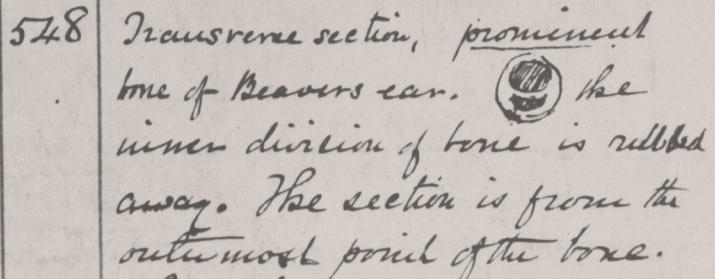 548 Transverse section, prominent
bone of Beavers ear. The
inner division of bone is rubbed
away. The section is from the
outermost point of the bone.